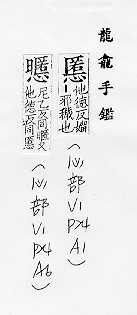 龍龕手鑑
慝 他德反 邪穢也 (心部 V1 A1)
尼乙反同暱又他德反同慝 (心部 V1 A6)